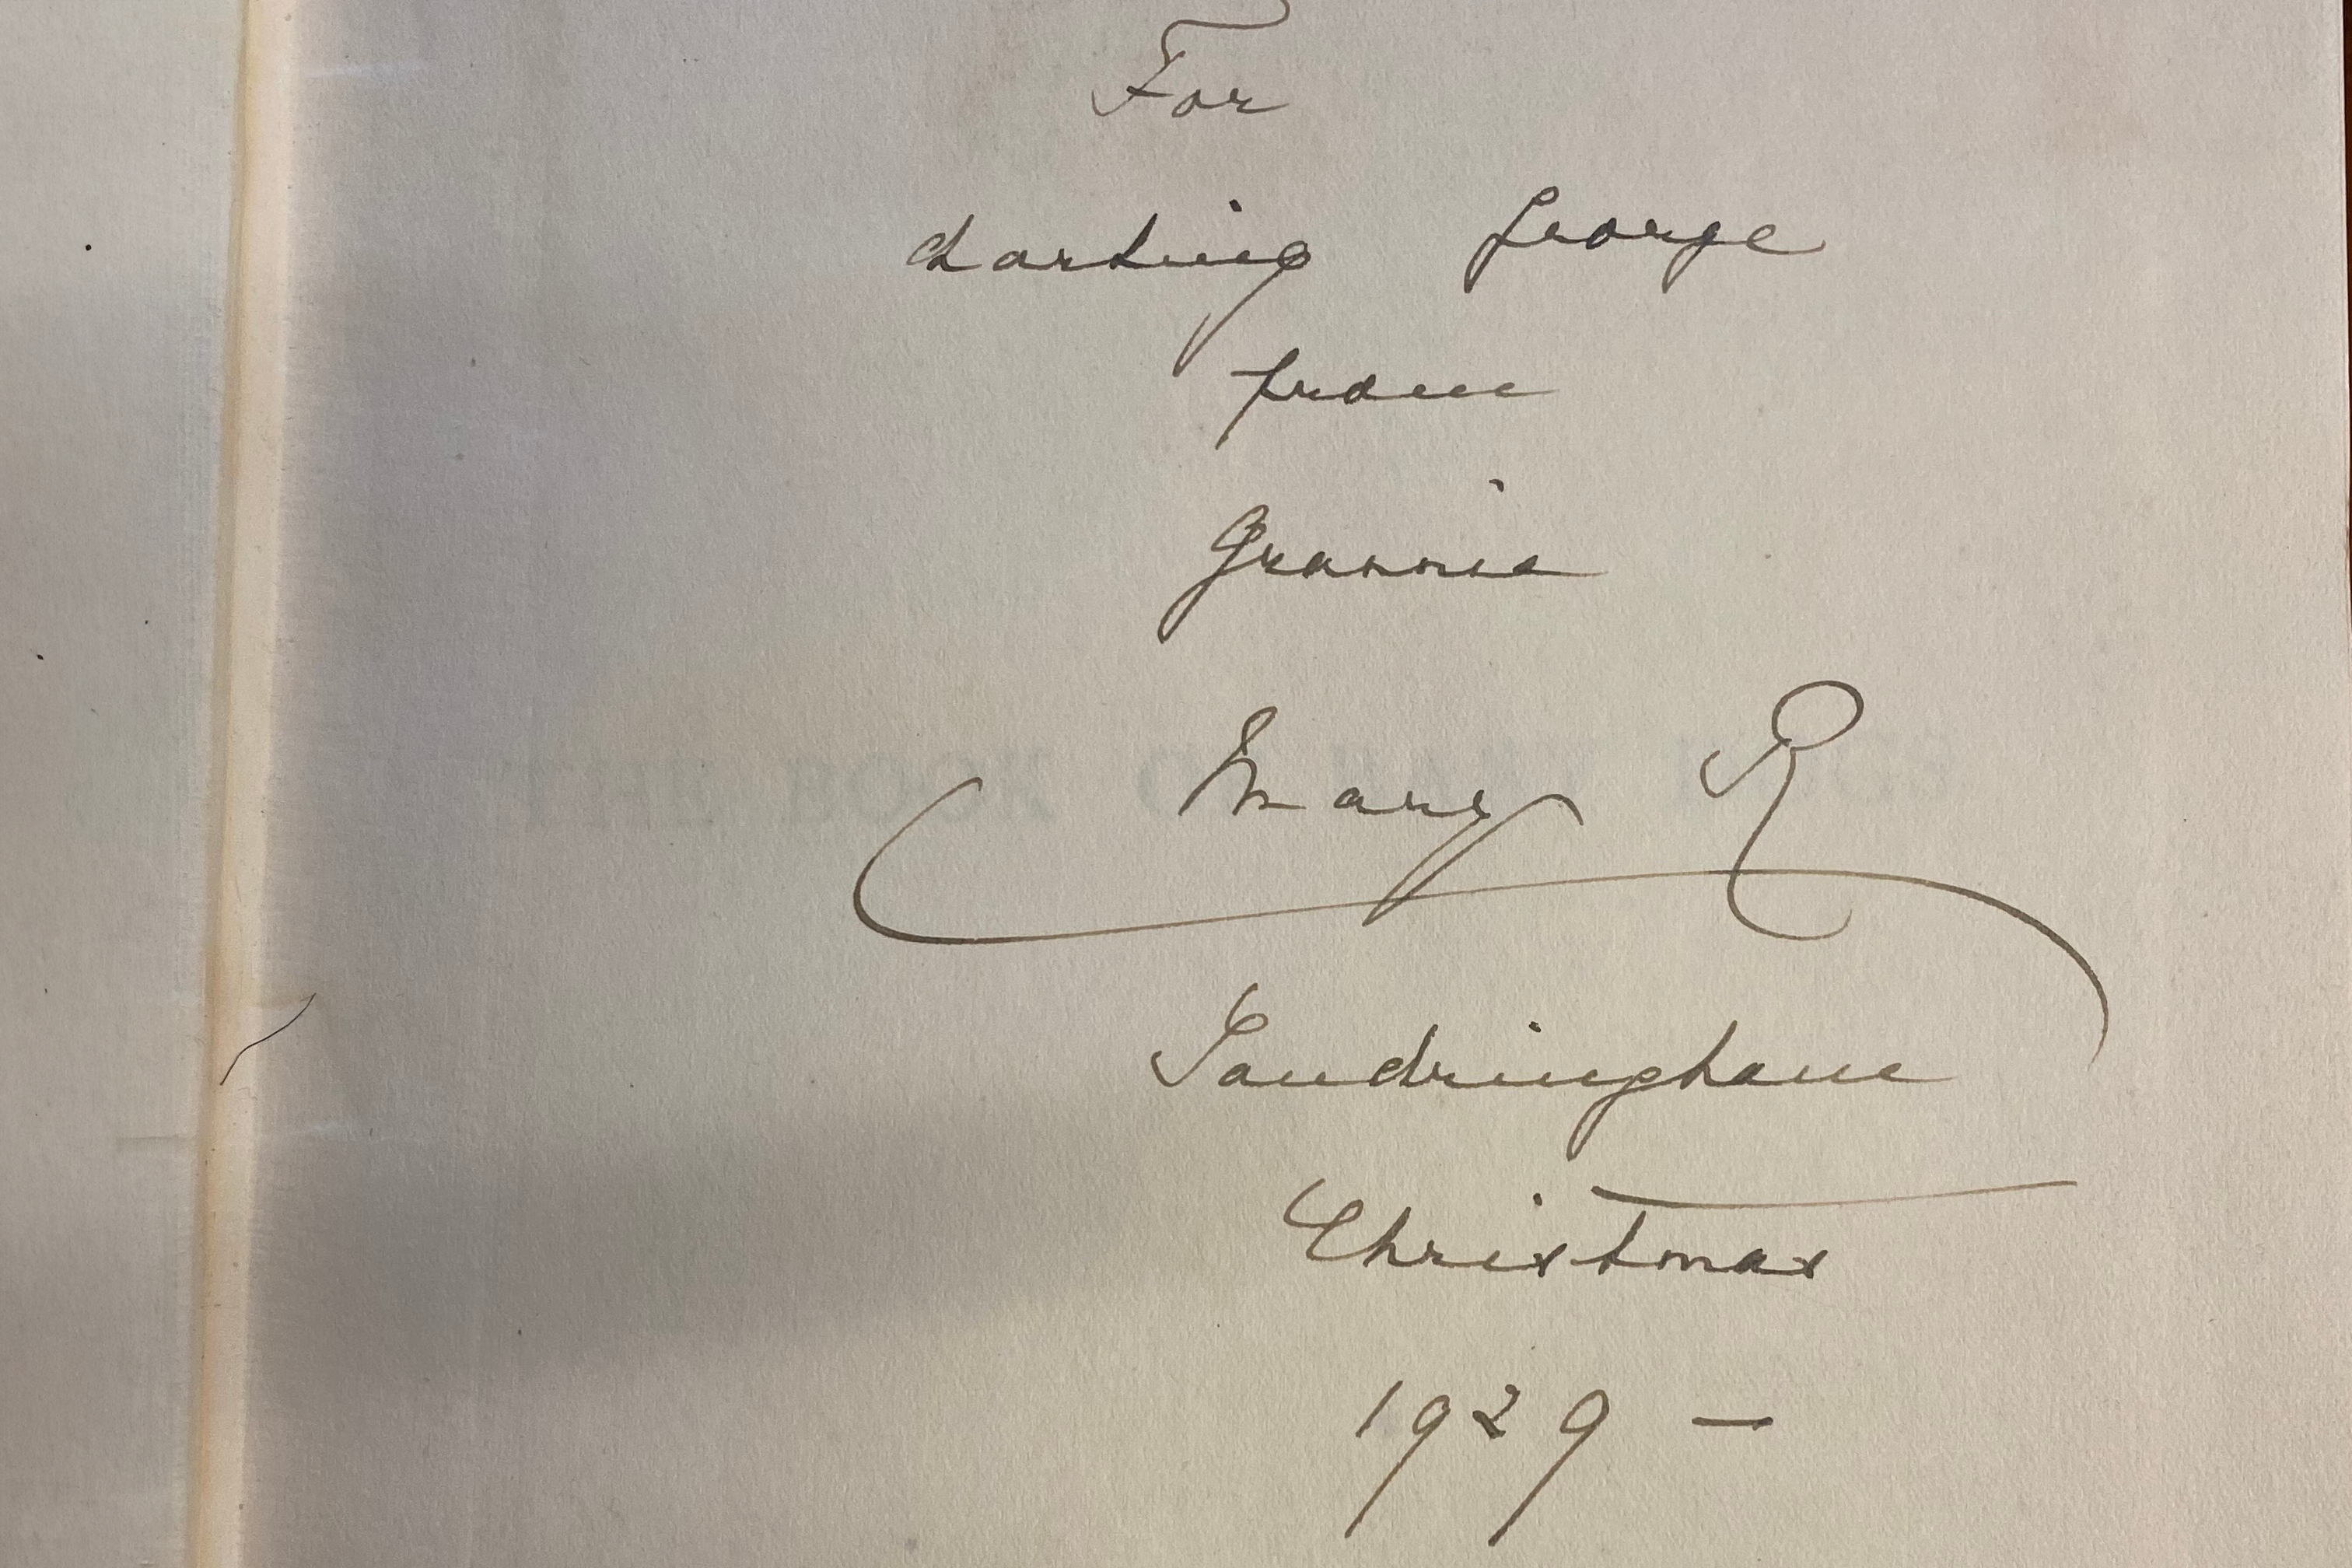 For
darling George
from
Grannie
Mary R
Sandringham
Christmas
1929 —
THE BOOK